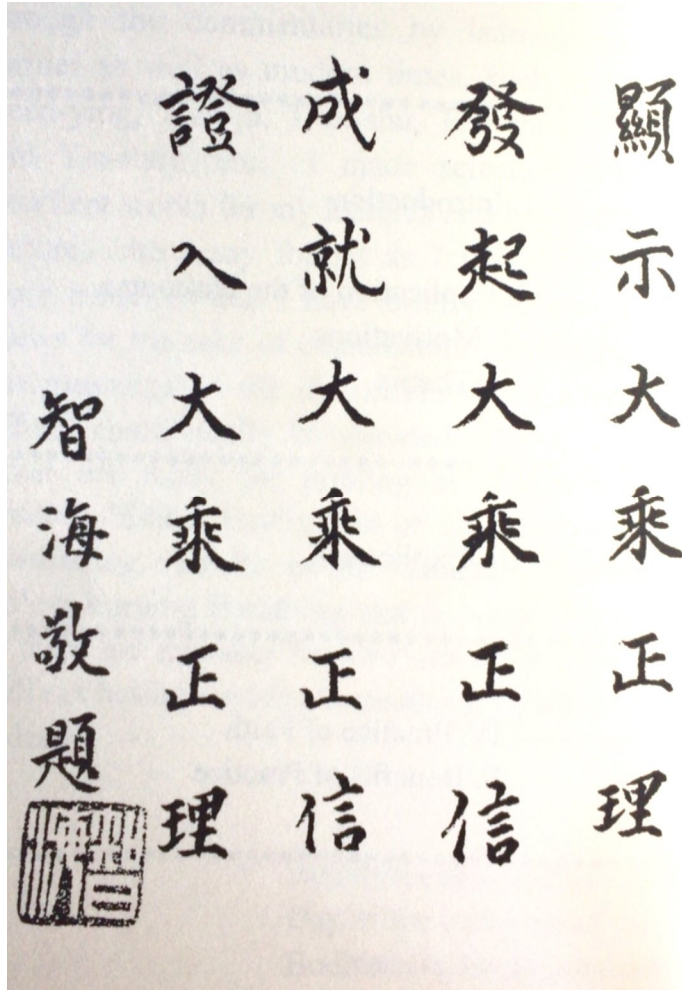 顯示大乘正理
發起大乘正信
成就大乘正信
證入大乘正理
智海敬題